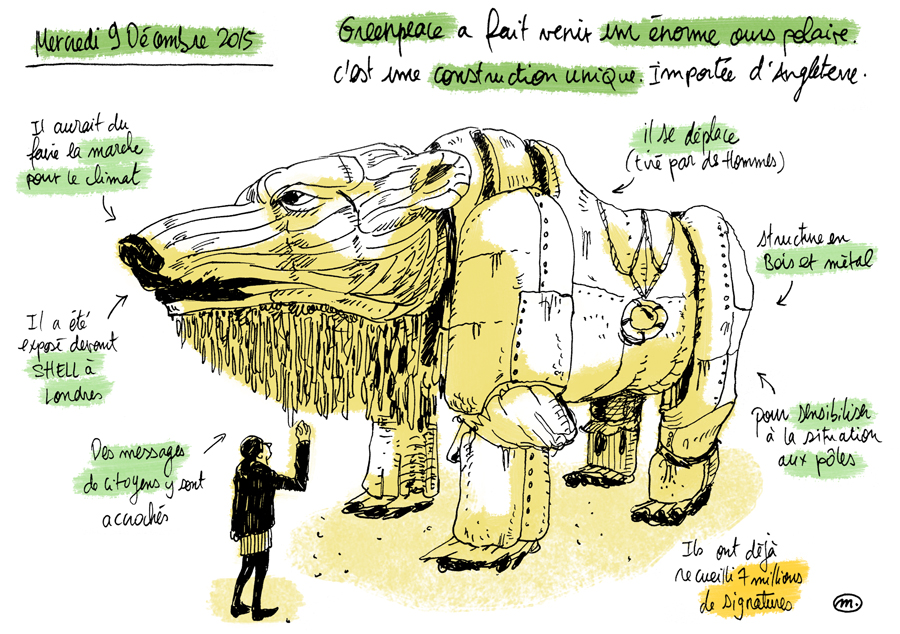 Mercredi 9 Décembre 2015
Greenpeace a fait venir un énorme ours polaire.
c'est une construction unique. Importée d'Angleterre.
Il aurait du
faire la marche
pour le climat
il se déplace
(tiré par de Hommes)
structure en
Bois et métal
Il a été
exposé devant
SHELL à
Londres
pour sensibiliser
à la situation
aux pôles
Des messages
de citoyens y sont
accrochés
Ils ont déjà
recueilli 7 millions
de signatures
m.